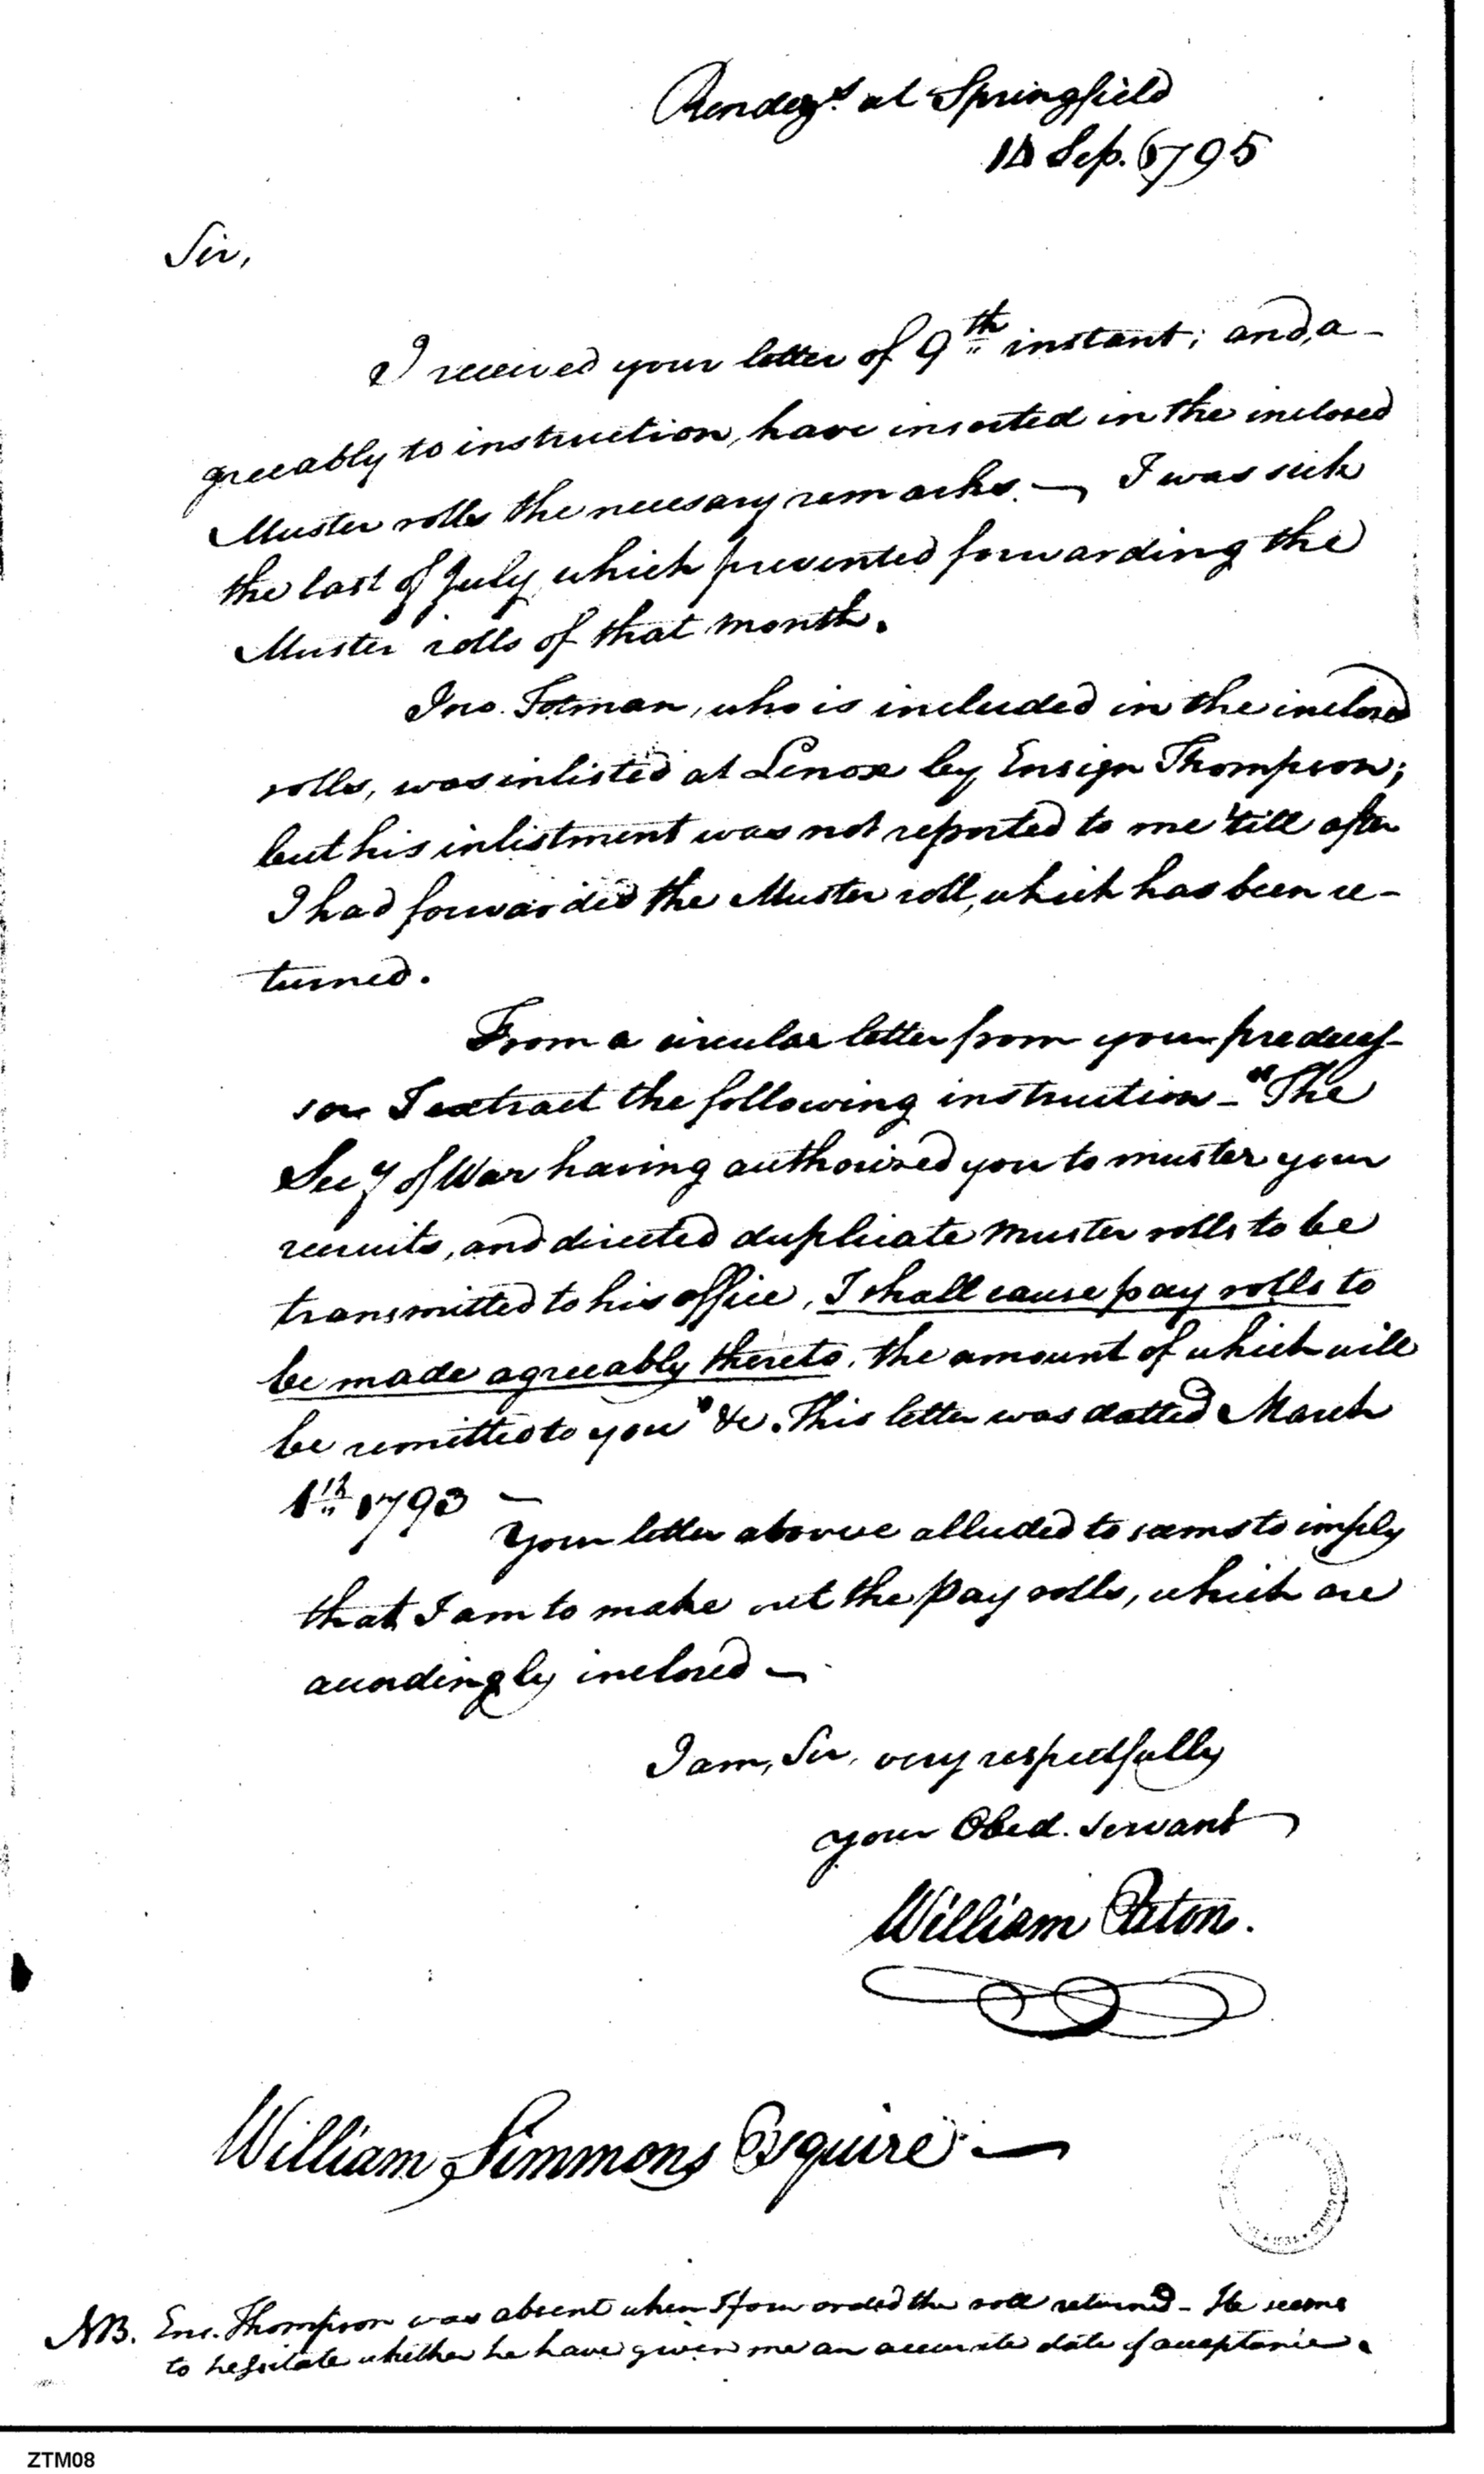 Rendezs. at Springfield
Sep. 1795
Sir,
I received your letter of 9th instant; and, a-
greeably to instruction, have inserted in the inclosed
Muster rolls the necesary remarks. — I was sick
the last of July, which prevented forwarding the
Muster rolls of that month.
Jno. Totman, who is included in the inclosed
rolls, was inlisted at Lenox by Ensign Thompson;
but his inlistment was not reported to me 'till after
I had forwarded the Muster roll, which has been re-
turned.
From a circular letter from your predeces-
sor I extract the following instruction - "The
Secy of War having authorized you to muster your
recruits, and directed duplicate muster rolls to be
transmitted to his office, I shall cause pay rolls to
be made agreeably thereto, the amount of which will
be remitted to you" &c. This letter was datted March
1th 1793 —
Your letter above alluded to seems to imply
that I am to make out the pay rolls, which are
accordingly inclosed —
I am, Sir, very respectfully
your Obed. servant
William Eaton.
William Simmons Esquire —
NB. Ens. Thompson was absent when I forwarded the roll returned - He seems
to hesitate whether he have given me an accurate date of acceptance.
ZTM08